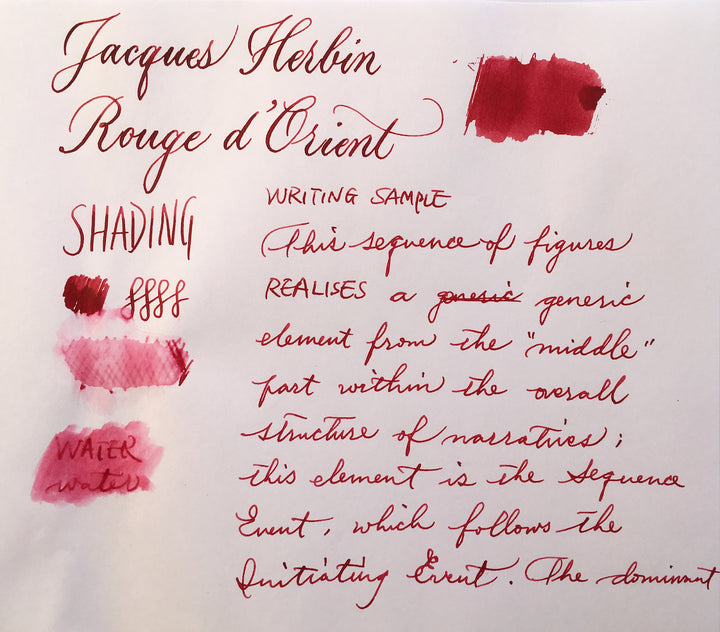 Jacques Herbin
Rouge d'Orient
SHADING
WATER
water
WRITING SAMPLE
(This sequence of figures
REALISES a genesic generic
element from the "middle"
part within the overall
structure of narratives;
this element is the Sequence
Event, which follows the
Initiating Event. The dominant